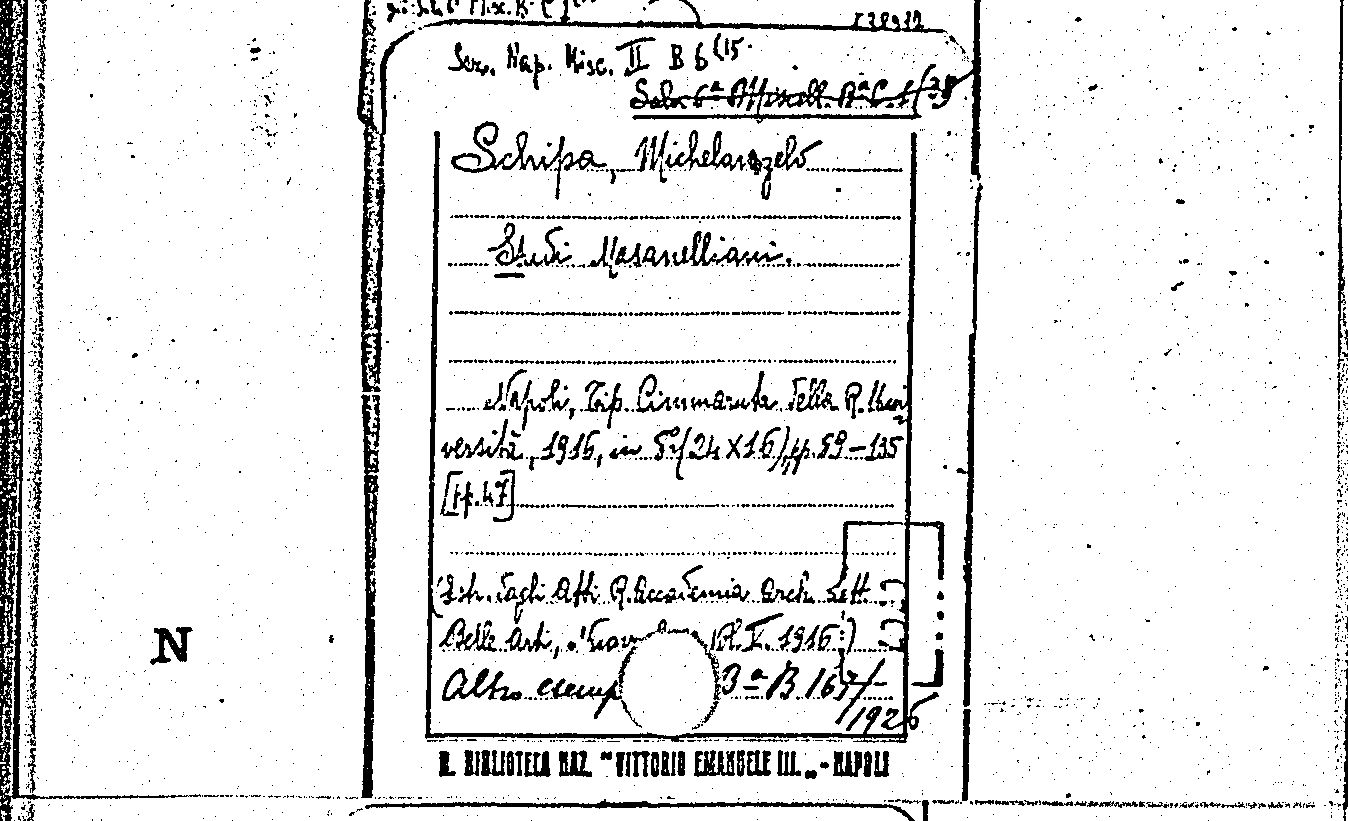 Sez. Nap. Misc. II B 6 (15.
Sala 6ª Miscell. Bª C. 1 (
Schipa, Michelangelo
Studi Masanelliani.
Napoli, Tip. Cimmaruta della R. Uni
versità, 1916, in 8º (24 X 16), pp. 89 – 135
[pp. 47]
(Estr. dagli Atti R. Accademia Arch. Lett.
Belle Arti, Vol. V. 1916.)
Altro esemp 3ª B 167/
1926
R. BIBLIOTECA NAZ. “VITTORIO EMANUELE III.„ - NAPOLI
N